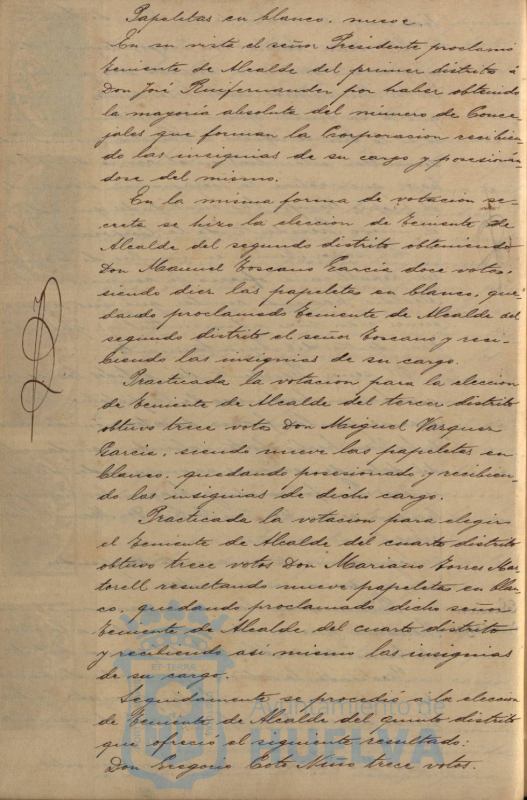 Papeletas en blanco, nueve.
En su vista el señor Presidente proclamó
teniente de Alcalde del primer distrito á
Don José Ruifernandez por haber obtenido
la mayoría absoluta del número de Conce-
jales que forman la Corporacion recibien-
do las insignias de su cargo y posesionan-
dose del mismo.
En la misma forma de votacion se-
creta se hizo la eleccion de teniente de
Alcalde del segundo distrito obteniendo
Don Manuel Toscano Garcia doce votos,
siendo diez las papeletas en blanco, que-
dando proclamado teniente de Alcalde del
segundo distrito el señor Toscano y reci-
biendo las insignias de su cargo.
Practicada la votacion para la eleccion
de teniente de Alcalde del tercer distrito
obtuvo trece votos Don Miguel Vazquez
Garcia, siendo nueve las papeletas en
blanco, quedando posesionado y recibien-
do las insignias de dicho cargo.
Practicada la votacion para elegir
el teniente de Alcalde del cuarto distrito
obtuvo trece votos Don Mariano Mar-
torell resultando nueve papeletas en blan-
co, quedando proclamado dicho señor
teniente de Alcalde del cuarto distrito
y recibiendo asi mismo las insignias
de su cargo.
Seguidamente se procedió a la eleccion
de teniente de Alcalde del quinto distrito
que ofreció el siguiente resultado:
Don Gregorio Coto Nuño trece votos.
ET TERRA
Ayuntamiento de
HUELVA